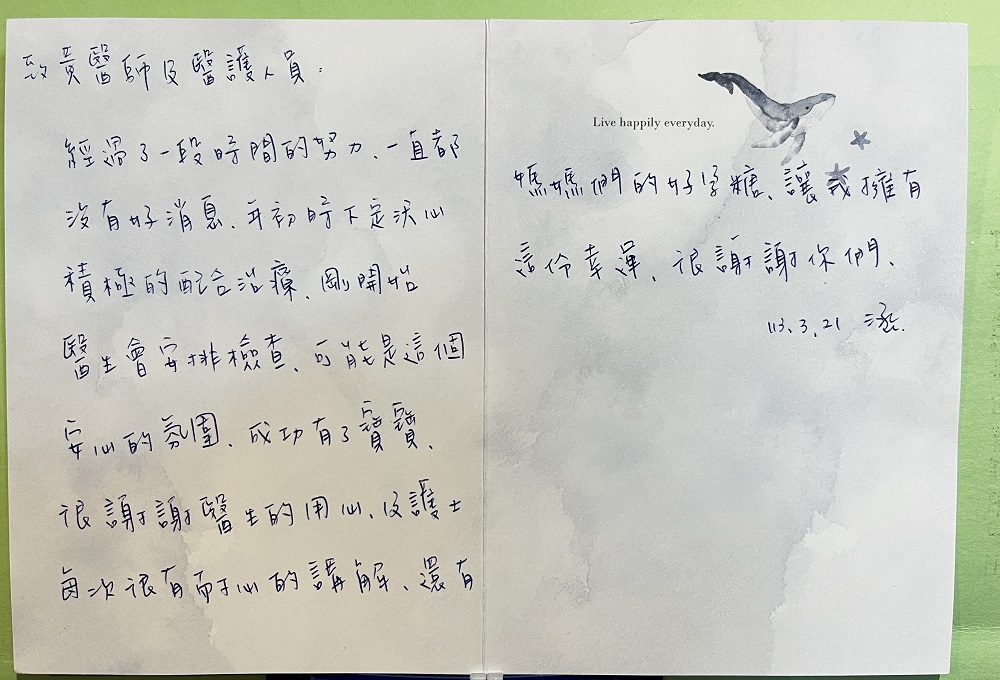 致黃醫師及醫護人員：
經過了一段時間的努力、一直都
沒有好消息、年初時下定決心
積極的配合治療、剛開始
醫生會安排檢查、可能是這個
安心的氛圍、成功有了寶寶、
很謝謝醫生的用心、及護士
每次很有耐心的講解、還有
Live happily everyday.
媽媽們的好孕糖、讓我擁有
這份幸運、很謝謝你們、
113.3.21